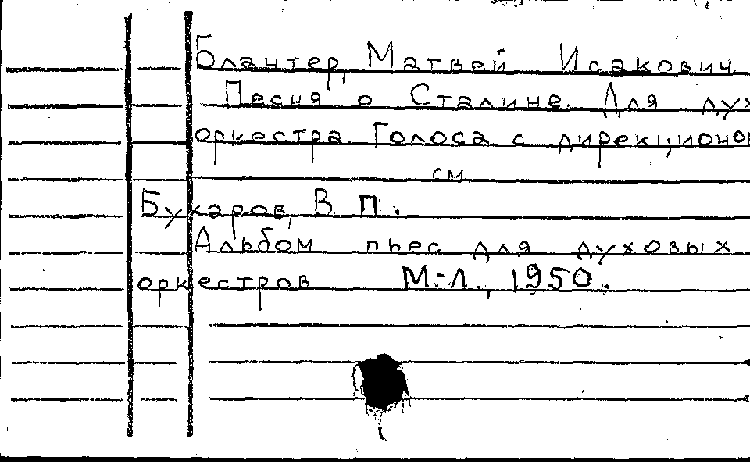 Блантер, Матвей Исакович
Песня о Сталине. Для дух
оркестра. Голоса с дирекционом
см
Бухаров, В. П.
Альбом пьес для духовых
оркестров М.-Л., 1950.